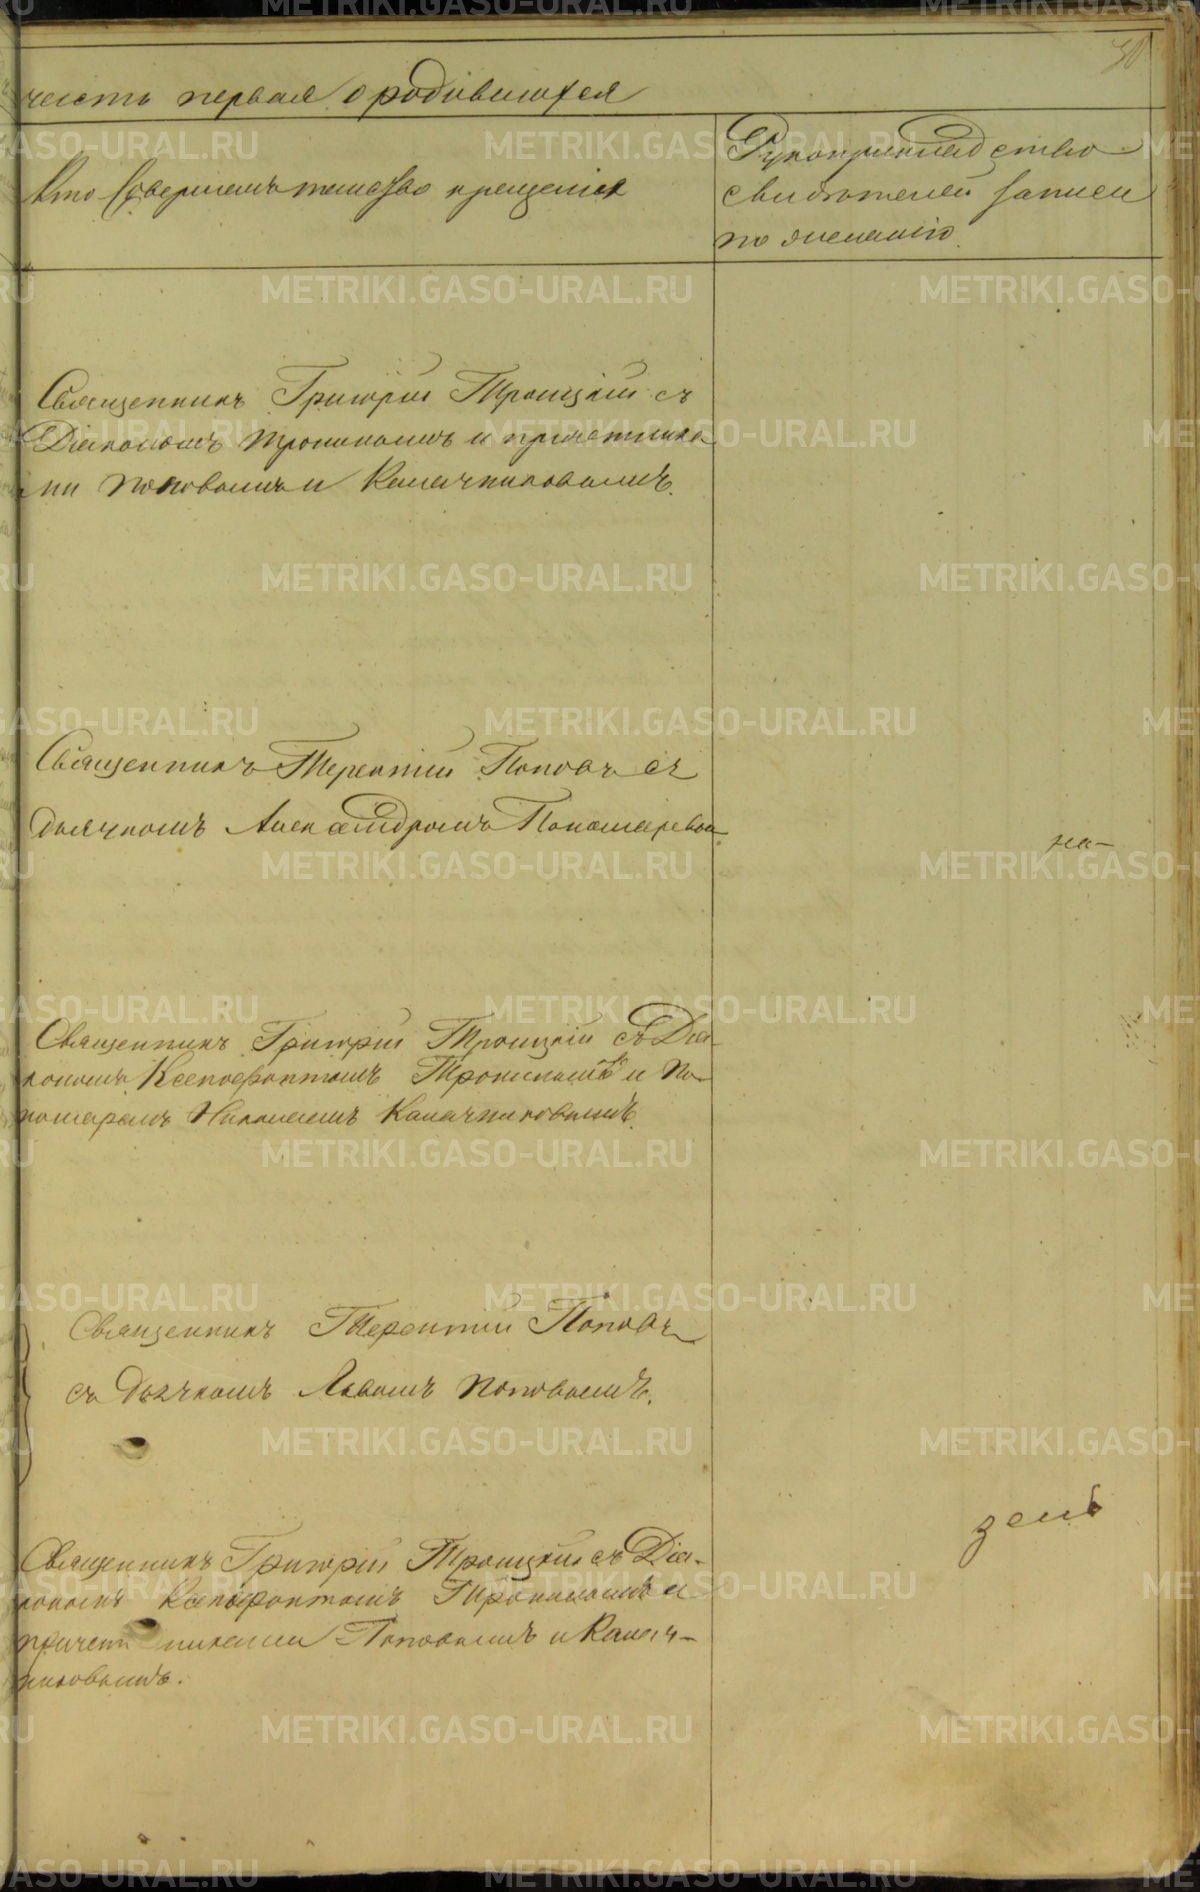 30
часть первая о родившихся
Кто совершалъ таинство крещенія
Рукоприкладство
свидѣтелей записи
по желанію.
Священникъ Григорій Троицкій съ
Діакономъ Трониномъ и причетника-
ми Поповымъ и Калачниковымъ.
Священникъ Терентій Поповъ съ
дьячкомъ Александромъ Пономаревым
на-
Священникъ Григорій Троицкій съ Діа-
кономъ Ксенофонтомъ Трониномъ и По-
номаремъ Николаемъ Калачниковымъ.
Священникъ Терентій Поповъ
съ Дьячкомъ Львомъ Поповымъ.
Священникъ Григорій Троицкій съ Діа-
кономъ Ксенофонтомъ Трониномъ и
причетниками Поповымъ и Калач-
никовымъ.
METRIKI.GASO-URAL.RU